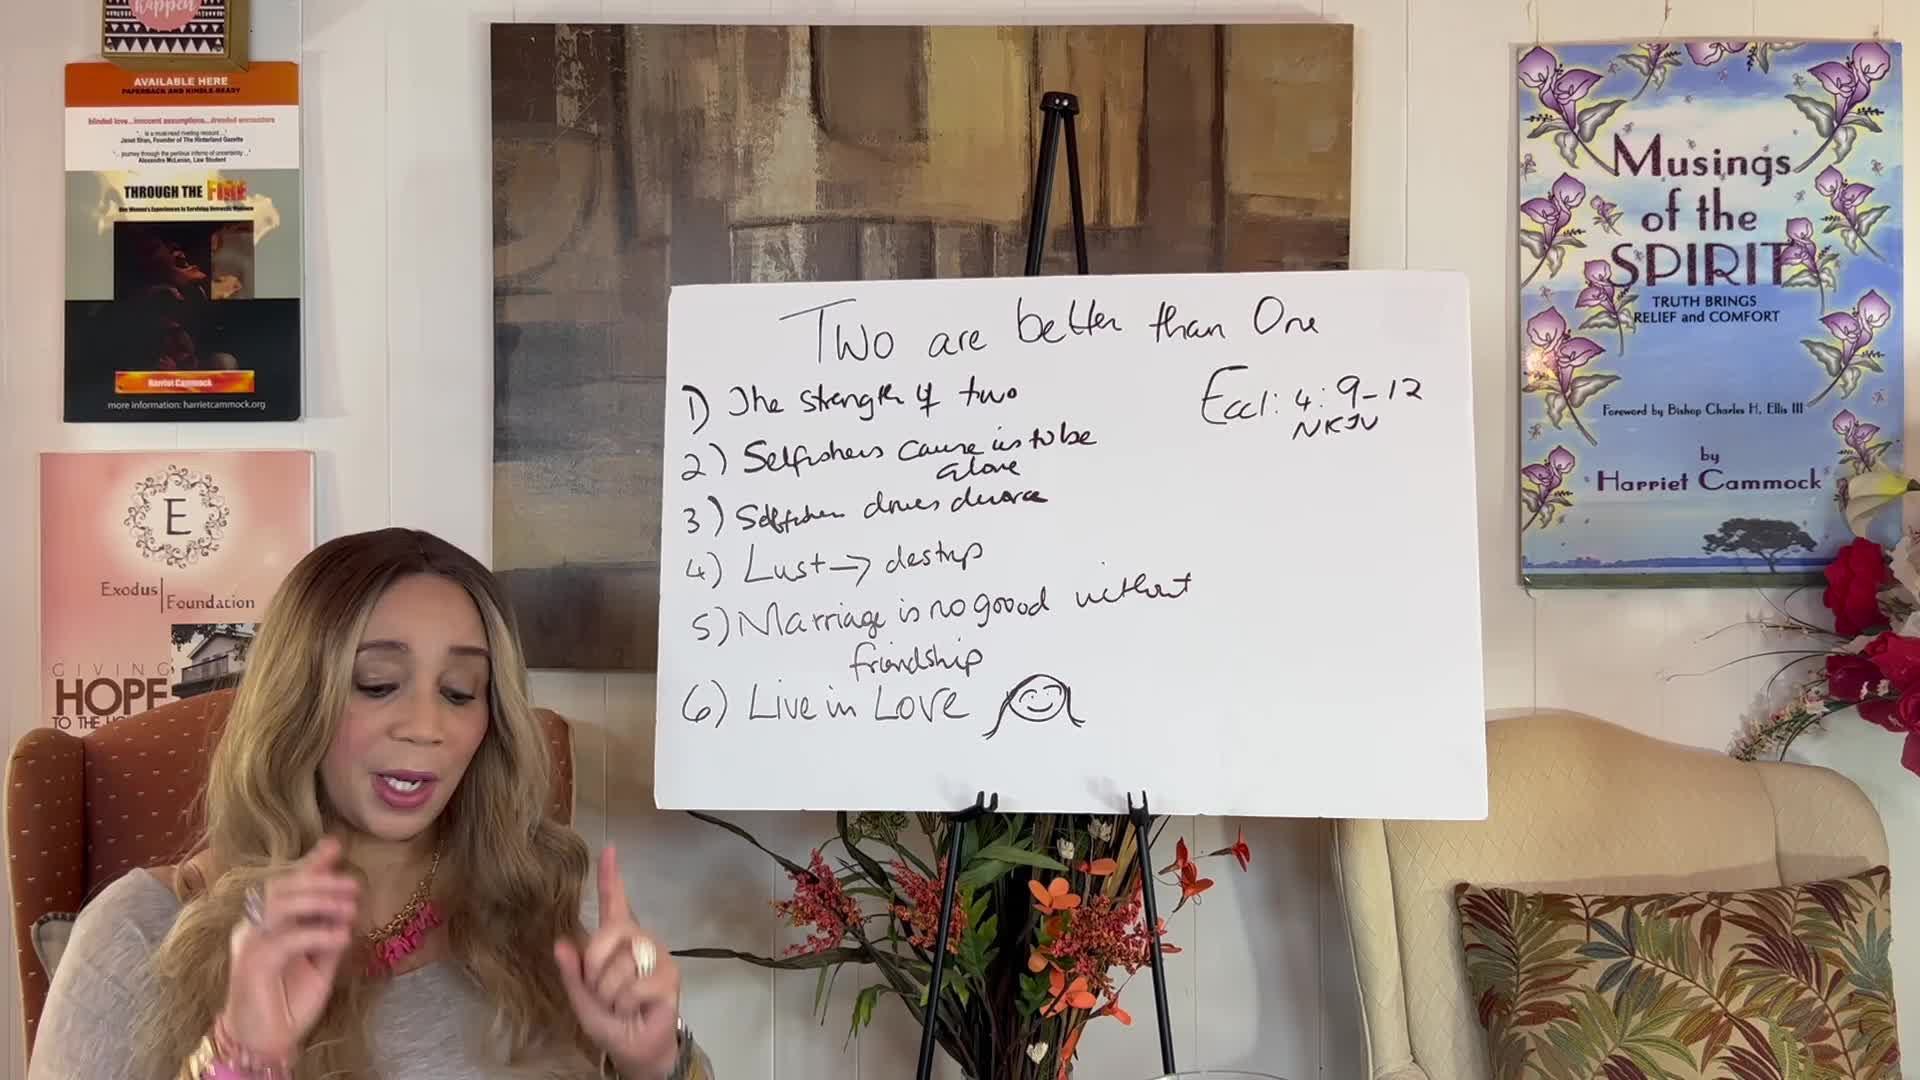 happen
AVAILABLE HERE
PAPERBACK AND KINDLE-READY
blinded love...innocent assumptions...dreaded encounters
"... is a must-read riveting account ..."
Janet Shan, Founder of The Hinterland Gazette
"... journey through the perilous inferno of uncertainty ..."
Alexandra McLenan, Law Student
THROUGH THE FIRE
One Women's Experiences in Surviving Domestic Violence
Harriet Cammock
more information: harrietcammock.org
E
Exodus Foundation
GIVING
HOPE
TO THE
Two are better than One
Eccl: 4:9-12
NKJV
1) The strength of two
2) Selfishness cause us to be
alone
3) drives divorce
4) Lust →
5) Marriage is no goood without
friendship
6) Live in LOVE
Musings
of the
SPIRIT
TRUTH BRINGS
RELIEF and COMFORT
Foreword by Bishop Charles H. Ellis III
by
Harriet Cammock